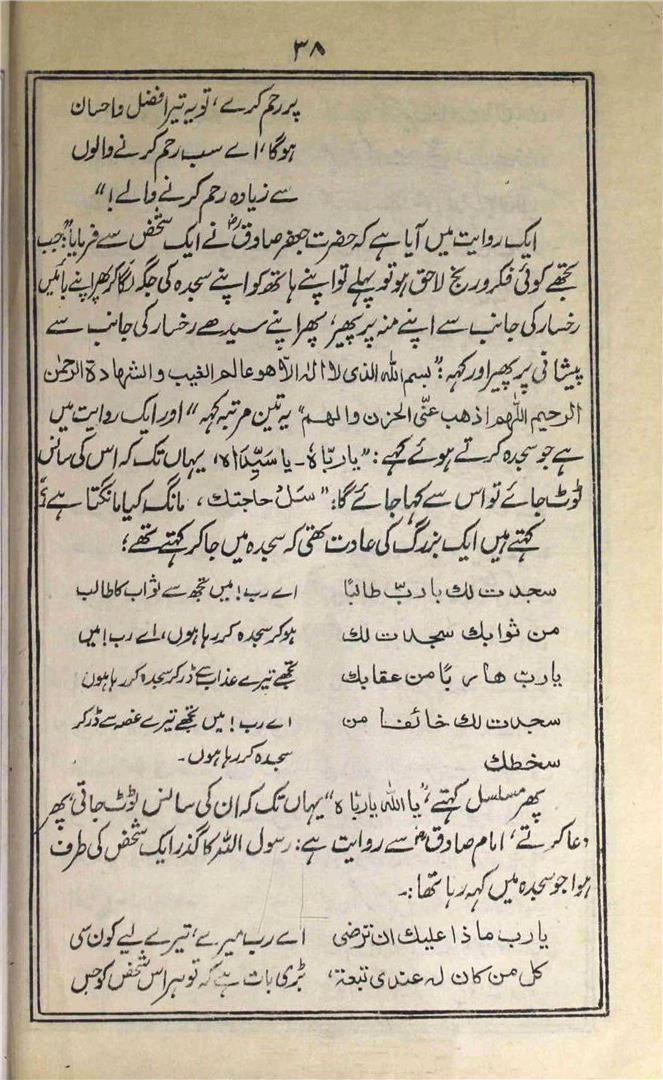 ۳۸
پر رحم کرے، تو یہ تیرا فضل و احسان
ہوگا، اے سب رحم کرنے والوں
سے زیادہ رحم کرنے والے!"
ایک روایت میں آیا ہے کہ حضرت جعفر صادقؑ نے ایک شخص سے فرمایا: "جب
تجھے کوئی فکر و رنج لاحق ہو تو پہلے تو اپنے ہاتھ کو اپنے سجدہ کی جگہ لگا کر پھر اپنے بائیں
رخسار کی جانب سے اپنے منہ پر پھیر، پھر اپنے سیدھے رخسار کی جانب سے
پیشانی پر پھیر اور کہہ: "بسم اللہ الذی لا الٰہ الا ھو عالم الغیب والشھادۃ الرحمٰن
الرحیم اللّٰھم اذھب عنّی الحزن والھم" یہ تین مرتبہ کہہ" اور ایک روایت میں
ہے جو سجدہ کرتے ہوئے کہے: "یا ربّاہ - یا سیّداہ، یہاں تک کہ اس کی سانس
ٹوٹ جائے تو اس سے کہا جائے گا: "سل حاجتك، مانگ کیا مانگتا ہے؟
کہتے ہیں ایک بزرگ کی عادت تھی کہ سجدہ میں جا کر کہتے تھے؛
سجدت لك یا ربّ طالبًا اے رب! میں تجھ سے ثواب کا طالب
من ثوابك سجدت لك ہو کر سجدہ کر رہا ہوں، اے رب! میں
یا ربّ ھاربًا من عقابك تجھے تیرے عذاب سے ڈر کر سجدہ کر رہا ہوں
سجدت لك خائفا من اے رب! میں تجھے تیرے غصہ سے ڈر کر
سخطك سجدہ کر رہا ہوں۔
پھر مسلسل کہتے، "یا اللہ یا ربّاہ" یہاں تک کہ ان کی سانس ٹوٹ جاتی، پھر
دعا کرتے، امام صادقؑ سے روایت ہے: رسول اللہ کا گذر ایک شخص کی طرف
ہوا جو سجدہ میں کہہ رہا تھا:۔
یا رب ماذا علیك ان ترضی اے رب میرے، تیرے لیے کون سی
کل من کان لہ عندی تبعۃ، بڑی بات ہے کہ تو ہر اس شخص کو جس